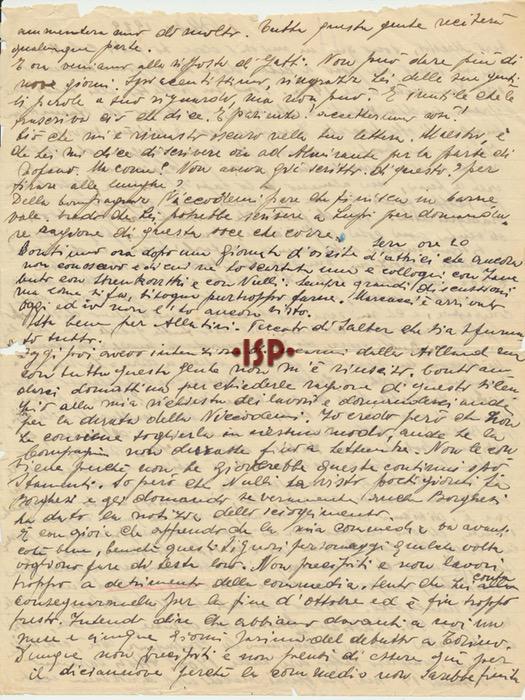 ammentera amo di molto. Tutta questa gente reciterà
qualunque parte.
E ora veniamo alla risposta di Gatti. Non può dare più di
nove giorni. Spiacentissimo, ringrazia Lei delle sue genti-
li parole a suo riguardo, ma non può. È inutile che le
trascriva ciò che dice. E pazienza! accettiamo così!
Ciò che mi è rimasto oscuro nella sua lettera, Maestro, è
che Lei mi dice di scrivere ora ad Almirante per la parte di
Ma come? Non aveva già scritto di questo? per
tirare alle lunghe?
Della Compagnia Niccodemi pare che finisca in carne-
vale. credo che Lei potrebbe scrivere a Lupi per domanda-
re ragione di questa voce che corre.
Continuo ora dopo una giornata sera ore 20 d'attrici che ancora
non conoscevo e di cui ne ho scartata una e colloqui con
con Strenkowsky e con Nulli. Sempre grandi discussioni
ma come si fa, bisogna purtroppo farne. Marcacci è arrivato
oggi ed io non l'ho ancora visto.
Sta bene per Allatini. Peccato di Salter che sia
to tutto.
Oggi poi avevo dalla Aillaud ma
con tutta questa gente non m'è riuscito. Conto an-
darci domattina per chiederle ragione di questo silen-
zio alla mia richiesta dei lavori e domandarci anche
per la durata della Niccodemi. Io credo però che non
le conviene toglierla in nessun modo, anche se la
Compagnia non durasse fino a settembre. Non le con-
viene perché non le gioverebbe questo continuo spo-
stamenti. So però che Nulli ha visto pochi giorni fa
Borghesi e gli domandò se veramente anche Borghesi
ha dato la notizia dello scioglimento.
È con gioia che apprendo che la sua commedia va avanti
così bene, benché questi Signori personaggi qualche volta
vogliono fare di testa loro. Non precipiti e non lavori
troppo a detrimento della commedia. Sento che Lei conta
consegnarmela per la fine d'ottobre ed è fin troppo
presto. Intendo dire che abbiamo davanti a noi un
mese e cinque giorni prima del debutto a Torino.
Dunque non precipiti e non tenti di essere qui per
il diciannove perché la commedia non sarebbe finita
•ISP•